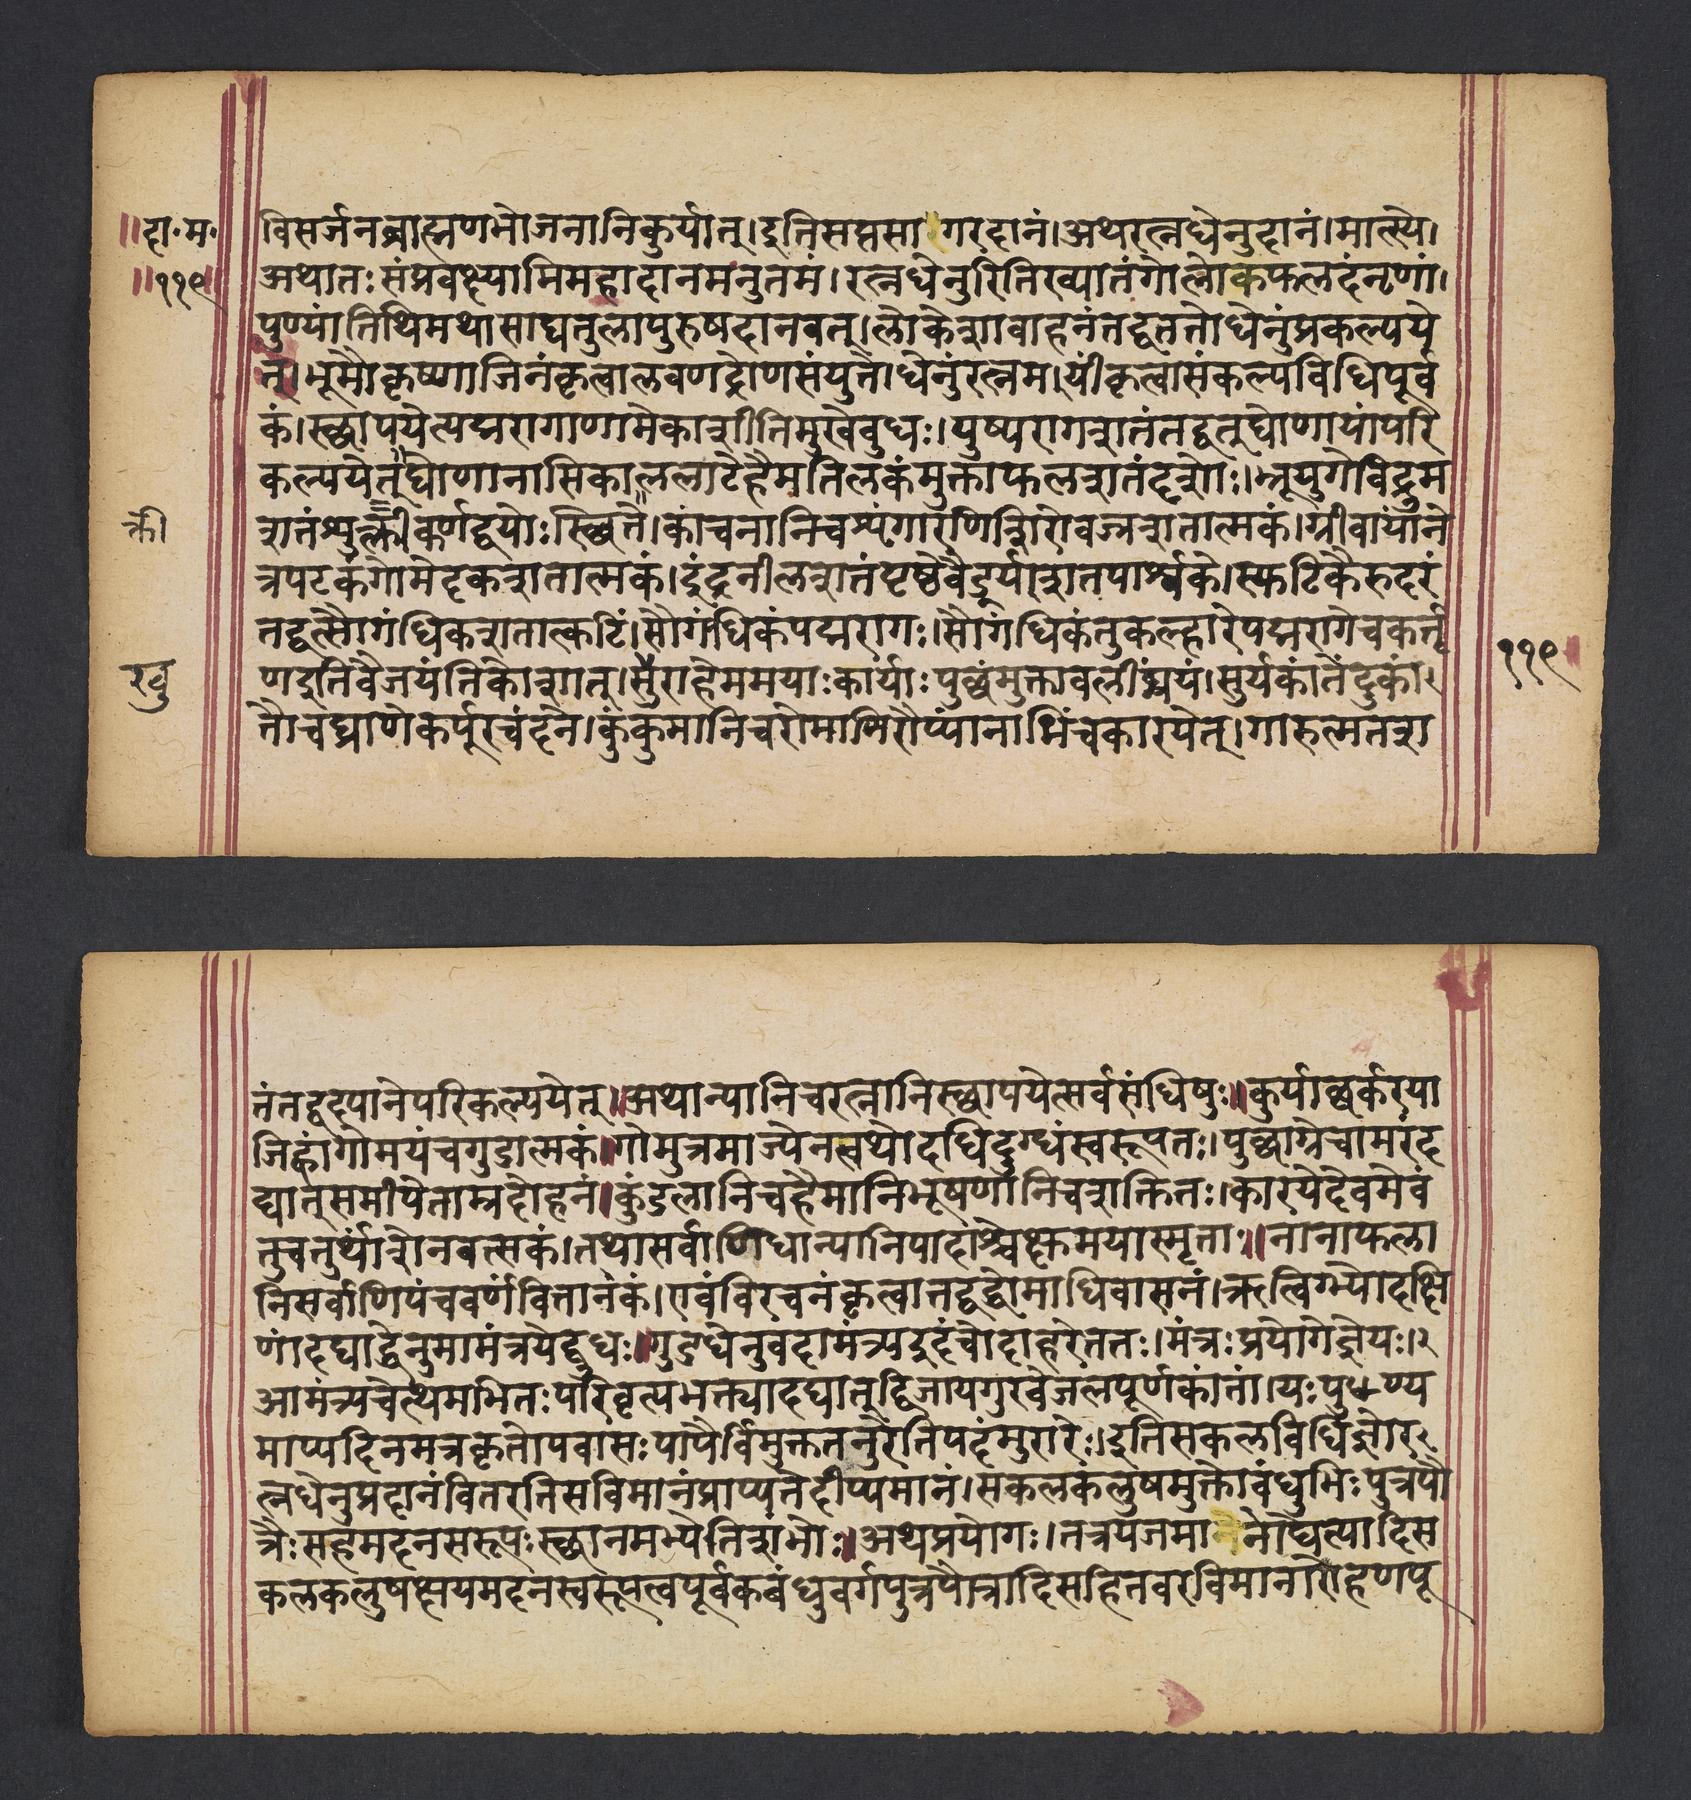 ॥दा॰म॰
॥११९॥
विसर्जनब्राह्मणभोजनानिकुर्यात्।इतिसप्तसागरदानं।अथरत्नधेनुदानं।मात्स्ये।
अथातःसंप्रवक्ष्यामिमहादानमनुत्तमं।रत्नधेनुरितिख्यातंगोलोकफलदंनृणां।
पुण्यांतिथिमथासाद्यतुलापुरुषदानवत्।लोकेशावाहनंतद्वत्ततोधेनुंप्रकल्पये
त्।भूमौकृष्णाजिनंकृत्वालवणद्रोणसंयुतंधेनुंरत्नम।यींकृत्वासंकल्पविधिपूर्व
कं।स्थापयेत्पद्मरागाणामेकाशीतिमुखेबुधः।पुष्परागशतंतद्वत्घोणायांपरि
कल्पयेत्घोणानासिकाललाटेहैमतिलकंमुक्ताफलशतंदृशोः।भ्रूयुगेविद्रुम
शतंशुक्तीकर्णद्वयोःस्थिते।कांचनानिचशृंगाणिशिरोवज्रशतात्मकं।ग्रीवायांने
त्रपटकंगोमेदकशतात्मकं।इंद्रनीलशतंपृष्ठेवैडूर्यशतपार्श्वके।स्फटिकैरुदरं
तद्वत्सौगंधिकशतात्कटिं।सौगंधिकंपद्मरागः।सौगंधिकंतुकल्हारेपद्मरागेचकर्तृ
णइतिवैजयंतिकोशात्।खुराहेममयाःकार्याःपुछंमुक्तावलीमयं।सुर्यकांतेंदुकां
तौचघ्राणेकर्पूरचंदने।कुंकुमानिचरोमाणिरौप्यांनाभिंचकारयेत्।गारुत्मतशा
क्ती
खु
११९॥
तंतद्वदपानेपरिकल्पयेत्॥अथान्यानिचरत्नानिस्थापयेत्सर्वसंधिषु॥कुर्याछर्करया
जिह्वांगोमयंचगुडात्मकं॥गोमुत्रमाज्येनतथोदधिदुग्धंस्वरूपतः।पुछाग्रेचामरंद
द्यात्समीपेताम्रदोहनं॥कुंडलानिचहैमानिभूषणानिचशक्तितः।कारयेदेवमेवं
तुचतुर्थांशेनवत्सकं।तथासर्वाणिधान्यानिपादाश्चेक्षुमयास्मृताः॥नानाफला
निसर्वाणिपंचवर्णंवितानकं।एवंविरचनंकृत्वातद्वद्धोमाधिवासनं।ऋत्विग्भ्योदक्षि
णांदद्याद्धेनुमामंत्रयेद्बुधः॥गुडधेनुवदामंत्र्यइदंचोदाहरेत्ततः।मंत्रःप्रयोगेज्ञेयः।
आमंत्र्यचेत्थमभितःपरिवृत्यभक्त्यादद्यात्द्विजायगुरवेजलपूर्णकांतां।यःपुण्य
माप्यदिनमत्रकृतोपवासःपापैर्विमुक्ततनुरेतिपदंमुरारेः।इतिसकलविधिज्ञोर
त्नधेनुप्रदानंवितरतिसविमानंप्राप्यतेदीप्यमानं।सकलकलुषमुक्तोबंधुभिःपुत्रपौ
त्रैःसहमदनसरूपःस्थानमभ्येतिशंभोः॥अथप्रयोगः।तत्रयजमानेनोद्येत्यादिस
कलकलुषक्षयमदनस्वरूपत्वपूर्वकबंधुवर्गपुत्रपौत्रादिसहितवरविमानारोहणपू